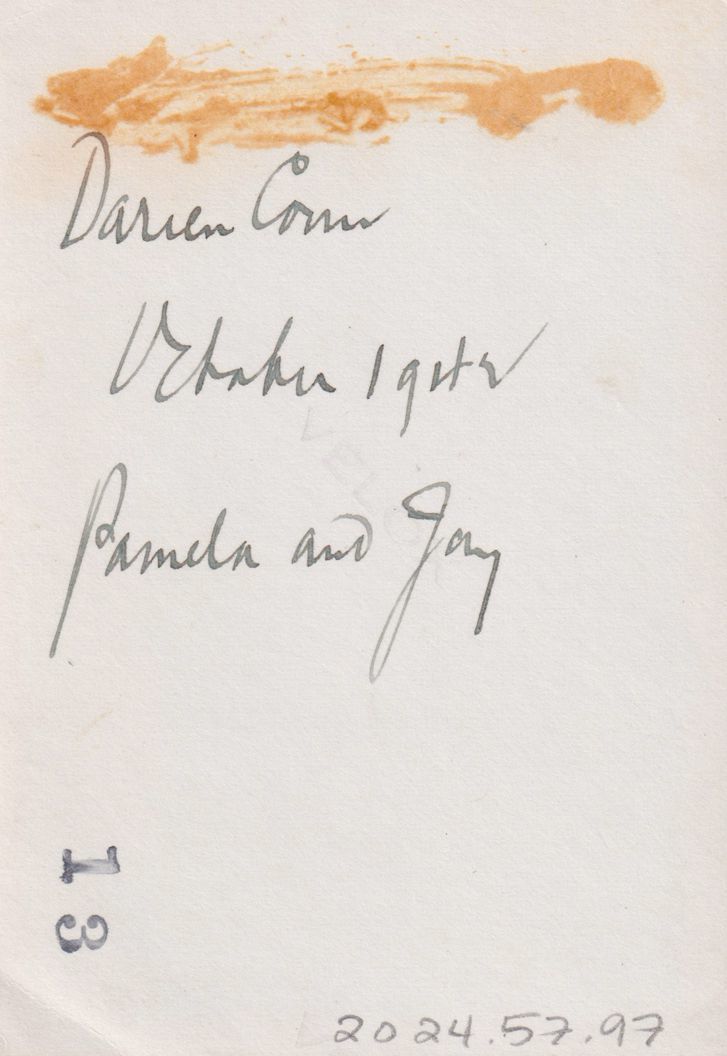 Darien Conn
October 1942
Pamela and Jay
VELOX
13
2024.57.97